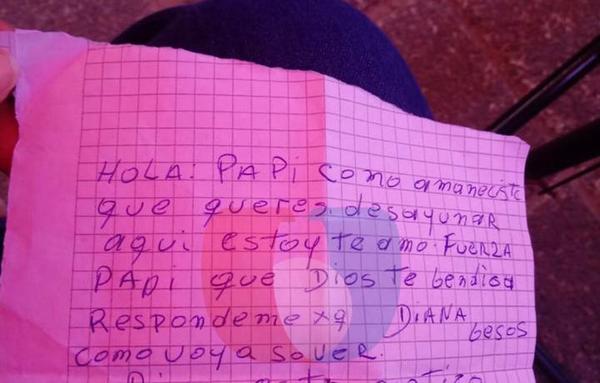 HOLA: PAPi como amaneciste
que queres desayunar
aqui estoy te amo. FUERZA
PAPi que Dios te bendiga
Respondeme xq DiANA
besos
como voy a saver.